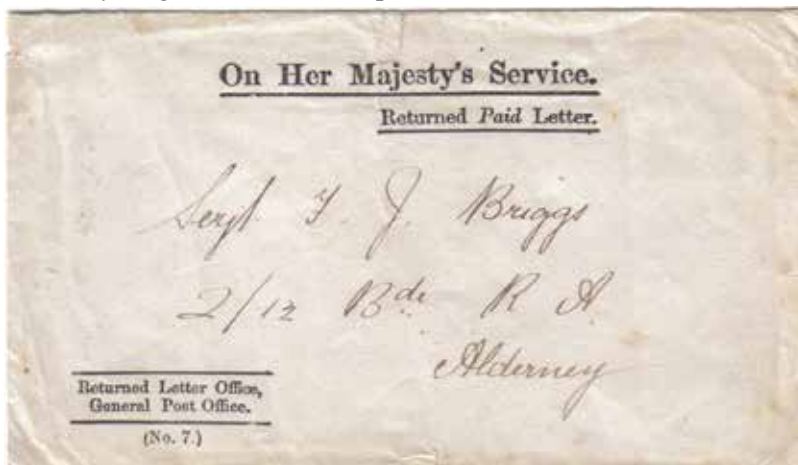 On Her Majesty's Service.
Returned Paid Letter.
Sergt F. J. Briggs
2/12 Bde R A
Alderney
Returned Letter Office,
General Post Office.
(No. 7.)